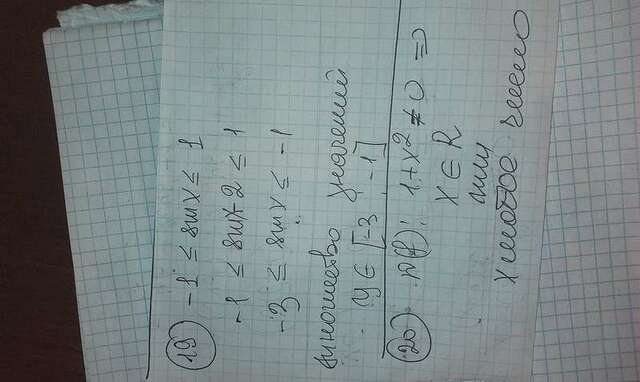 19) -1 ≤ sinx ≤ 1
-1 ≤ sinx-2 ≤ 1
-3 ≤ sinx ≤ -1
множество значений
y ∈ [-3 -1]
20) D(f): 1+x² ≠ 0 ⇒
x ∈ R
или
x любое число